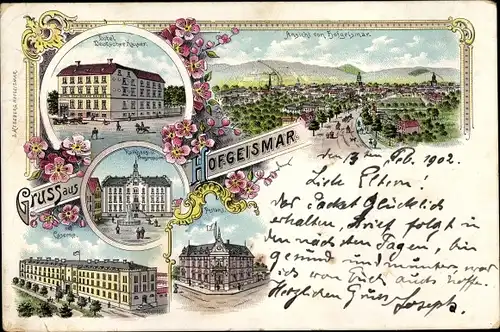 Hotel
Deutscher Kaiser
Ansicht von Hofgeismar.
Gruss aus
HOFGEISMAR.
Caserne
den 13ten Feb. 1902.
Liebe Eltern!
Das Packet Glücklich
erhalten, Brief folgt in
den nächsten Tagen, bin
gesund und munter, was
ich von Euch auch hoffe.
Herzlichen Gruss Joseph.